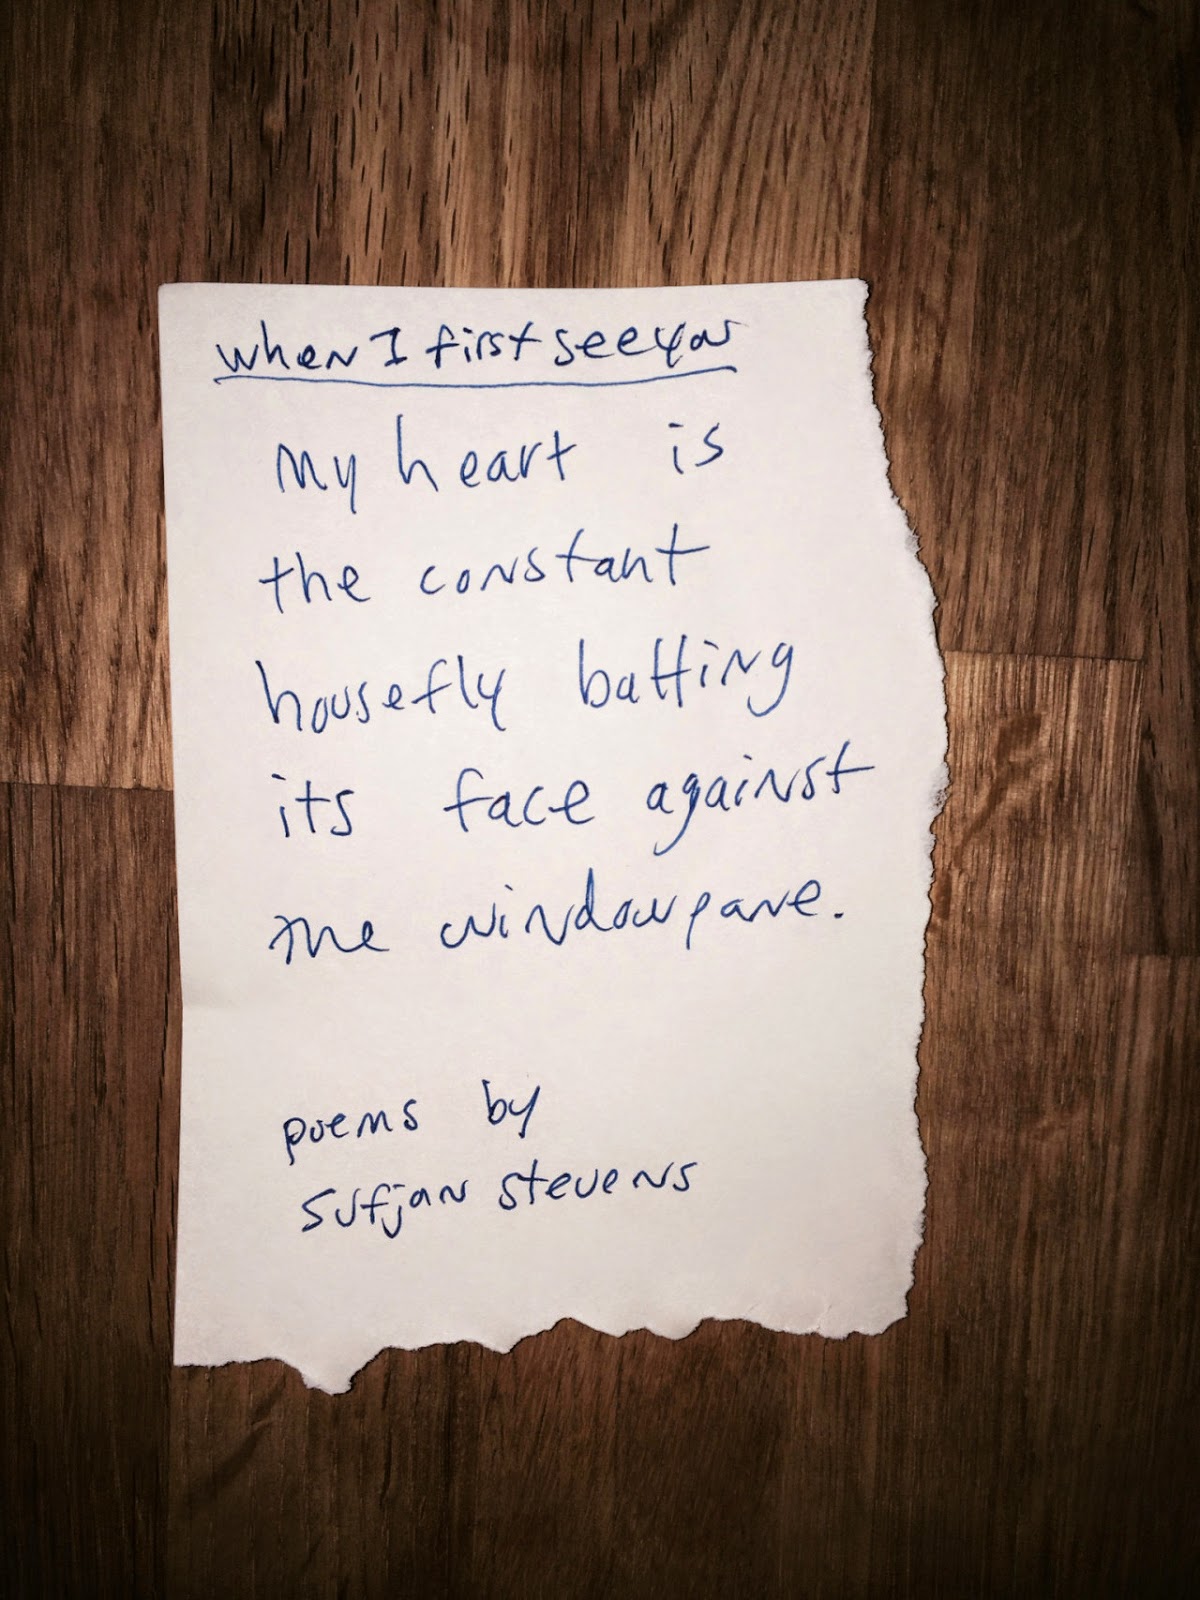 when I first see you
my heart is
the constant
housefly batting
its face against
the windowpane.
poems by
sufjan stevens